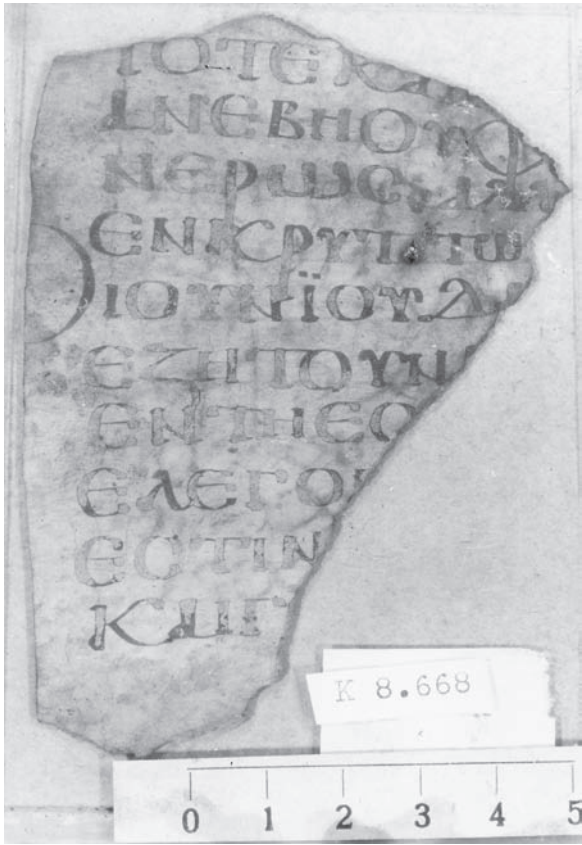 ΤΟΤΕΚΑΙ
ΑΝΕΒΗΟΥΦ
ΝΕΡΩϹΑΛΛΑ
ΕΝΚΡΥΠΤΩ
ΟΙΟΥΝΪΟΥΔΑ
ΕΖΗΤΟΥΝΑ
ΕΝΤΗΕΟ
ΕΛΕΓΟΝ
ΕϹΤΙΝ
ΚΑΙΓ
K 8.668
0 1 2 3 4 5